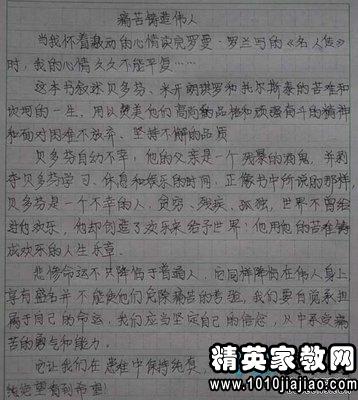 痛苦铸造伟人
当我怀着激动的心情读完罗曼·罗兰写的《名人传》
时，我的心情久久不能平复……
这本书叙述贝多芬、米开朗琪罗和托尔斯泰的苦难和
坎坷的一生，用以赞美他们高尚的品格和顽强奋斗的精神
和面对困难不放弃、坚持不懈的品质
贝多芬自幼不幸：他的父亲是一个残暴的酒鬼，并剥
夺贝多芬学习、休息和娱乐的时间，正像书中所说的那样
贝多芬是一个不幸的人，贫穷、残疾、孤独，世界不曾给
过他欢乐，他却创造了欢乐来给予世界：他用他的苦难铸
成欢乐的人生乐章。
悲惨命运不只降临于普通人，它同样降临在伟人身上
享有盛名并不能使他们免除痛苦的考验，我们要自觉承担
属于自己的命运，我们应当坚定自己的信念，从中承受痛
苦的勇气和能力。
它让我们在患难中保持纯真，
绝望看到希望！
精英家教网
www.1010jiajiao.com